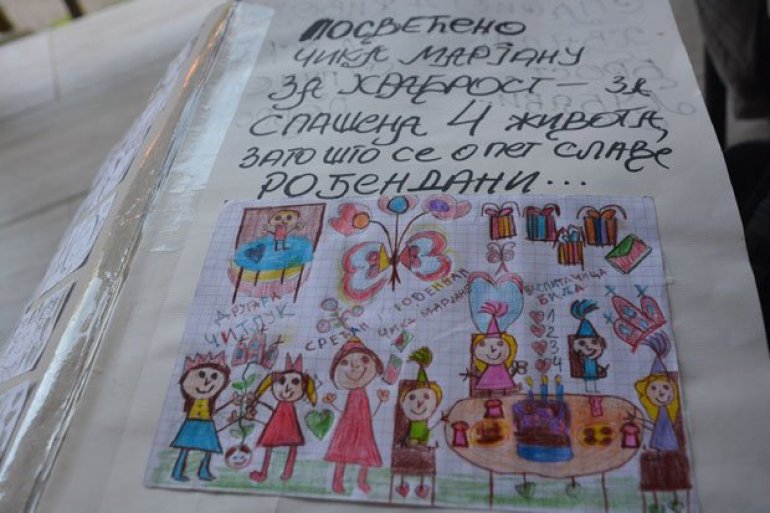 ПОСВЕЋЕНО
ЧИКА МАРЈАНУ
ЗА ХРАБРОСТ – ЗА
СПАШЕНА 4 ЖИВОТА,
ЗАТО ШТО СЕ ОПЕТ СЛАВЕ
РОЂЕНДАНИ...
ДРУГАРА
ЧИТЛУК
СРЕЋАН РОЂЕНДАН
ЧИКА МАРЈАНЕ
ВАСПИТАЧИЦА
БИЉА
1
2
3
4